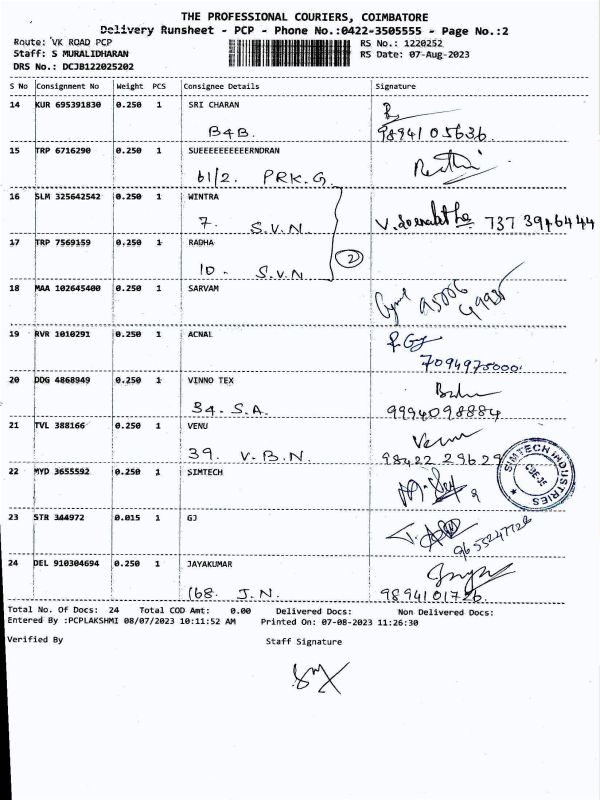 THE PROFESSIONAL COURIERS, COIMBATORE
Delivery Runsheet - PCP - Phone No.:0422-3505555 - Page No.:2
Route: VK ROAD PCP RS No.: 1220252
Staff: S MURALIDHARAN RS Date: 07-Aug-2023
DRS No.: DCJB122025202
S No Consignment No Weight PCS Consignee Details Signature
14 KUR 695391830 0.250 1 SRI CHARAN
B4B. 9894105636.
15 TRP 6716290 0.250 1 SUEEEEEEEEEERNDRAN
61/2. PRK.G.
16 SLM 325642542 0.250 1 WINTRA
7. S.V.N. 737 3916444
17 TRP 7569159 0.250 1 RADHA
10- S.V.N 2
18 MAA 102645400 0.250 1 SARVAM
19 RVR 1010291 0.250 1 ACNAL
7094975000.
20 DDG 4868949 0.250 1 VINNO TEX
34. S.A. 9994098884
21 TVL 388166 0.250 1 VENU Venu
39. V.B.N. 98422 29629
22 MYD 3655592 0.250 1 SIMTECH
SIMTECH INDUSTRIES
CBE-35
23 STR 344972 0.015 1 GJ
9655247726
24 DEL 910304694 0.250 1 JAYAKUMAR
168. J.N. 9894101726.
Total No. Of Docs: 24 Total COD Amt: 0.00 Delivered Docs: Non Delivered Docs:
Entered By :PCPLAKSHMI 08/07/2023 10:11:52 AM Printed On: 07-08-2023 11:26:30
Verified By Staff Signature